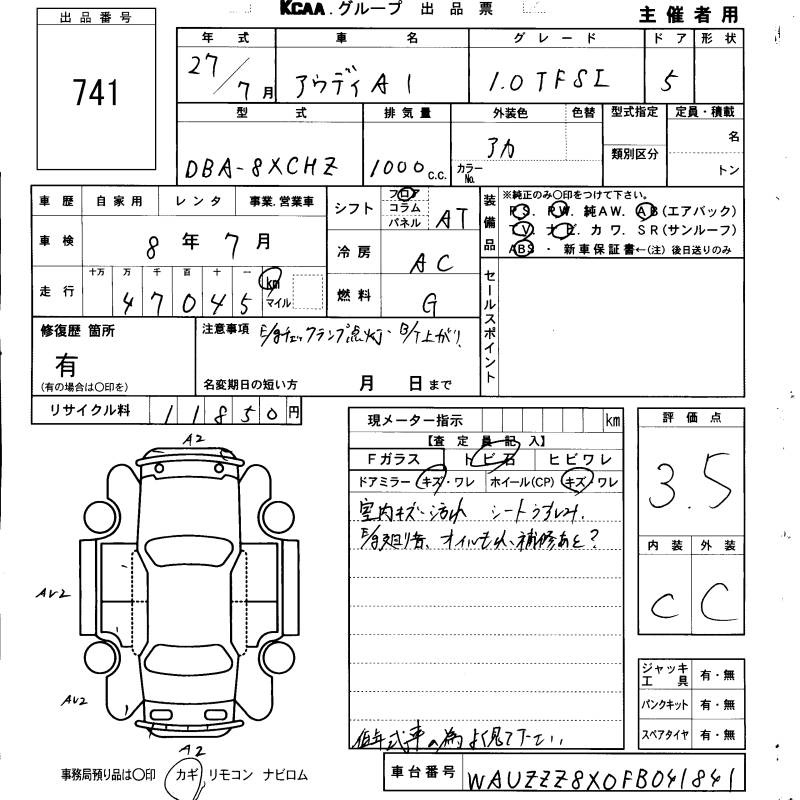 KCAA.グループ 出品票
主催者用
出品番号
741
年式 車名 グレード ドア 形状
27/7月 アウディA1 1.0TFSI 5
型式 排気量 外装色 色替 型式指定 定員・積載
DBA-8XCHZ 1000c.c. アカ カラーNo. 類別区分 名 トン
車歴 自家用 レンタ 事業.営業車
車検 8年7月
走行 十万 万 千 百 十 一
47045 km マイル
シフト フロア コラム パネル AT
冷房 AC
燃料 G
装備品 ※純正のみ〇印をつけて下さい。
PS. PW. 純AW. AB(エアバック)
TV. ナビ. カワ. SR(サンルーフ)
ABS ・ 新車保証書←(注) 後日送りのみ
セールスポイント
修復歴 箇所
有
(有の場合は〇印を)
注意事項 E/gチェックランプ点灯、B/T上がり、
名変期日の短い方 月 日まで
リサイクル料 11850円
現メーター指示 km
【査定員記入】
Fガラス トビ石 ヒビワレ
ドアミラー キズ・ワレ ホイール(CP) キズ・ワレ
室内キズ・汚れ シート
E/g廻り音、オイルもれ、補修あと?
低年式車の為よく見て下さい、
評価点
3.5
内装 外装
C C
ジャッキ工具 有・無
パンクキット 有・無
スペアタイヤ 有・無
A2
AV2
AV2
A2
事務局預り品は〇印 カギ リモコン ナビロム
車台番号 WAUZZZ8X0FB041841